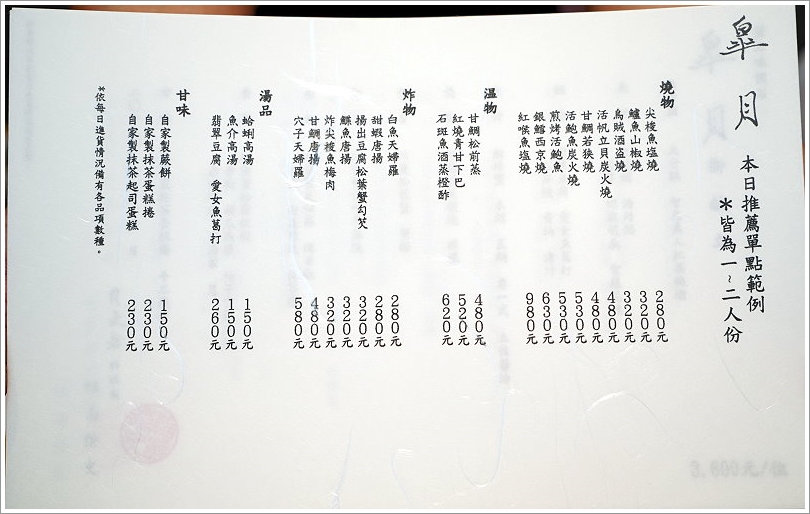 皐月
本日推薦單點範例
＊皆為一~二人份
燒物
尖梭魚塩燒 280元
鱸魚山椒燒 320元
烏賊酒盗燒 320元
活帆立貝炭火燒 480元
甘鯛若狹燒 480元
活鮑魚炭火燒 530元
煎烤活鮑魚 530元
銀鱈西京燒 630元
紅喉魚塩燒 980元
溫物
甘鯛松前蒸 480元
紅燒青甘下巴 520元
石斑魚酒蒸橙酢 620元
炸物
白魚天婦羅 280元
甜蝦唐揚 280元
揚出豆腐松葉蟹勾芡 320元
鰈魚唐揚 320元
炸尖梭魚梅肉 320元
甘鯛唐揚 480元
穴子天婦羅 580元
湯品
蛤蜊高湯 150元
魚介高湯 150元
翡翠豆腐 愛女魚葛打 260元
甘味
自家製蕨餅 150元
自家製抹茶蛋糕捲 230元
自家製抹茶起司蛋糕 230元
*依每日進貨情況備有各品項數種。
3,600元/組